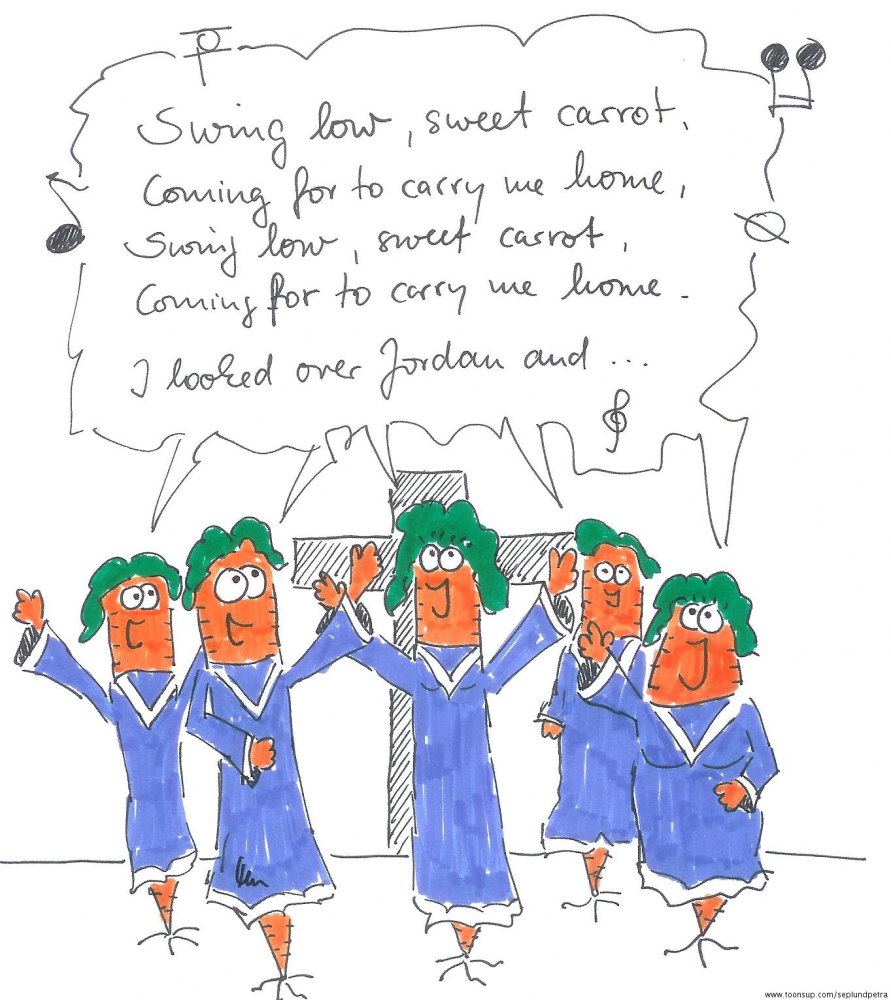 Swing low, sweet carrot,
Coming for to carry me home,
Swing low, sweet carrot,
Coming for to carry me home.
I looked over Jordan and ...
www.toonsup.com/seplundpetra